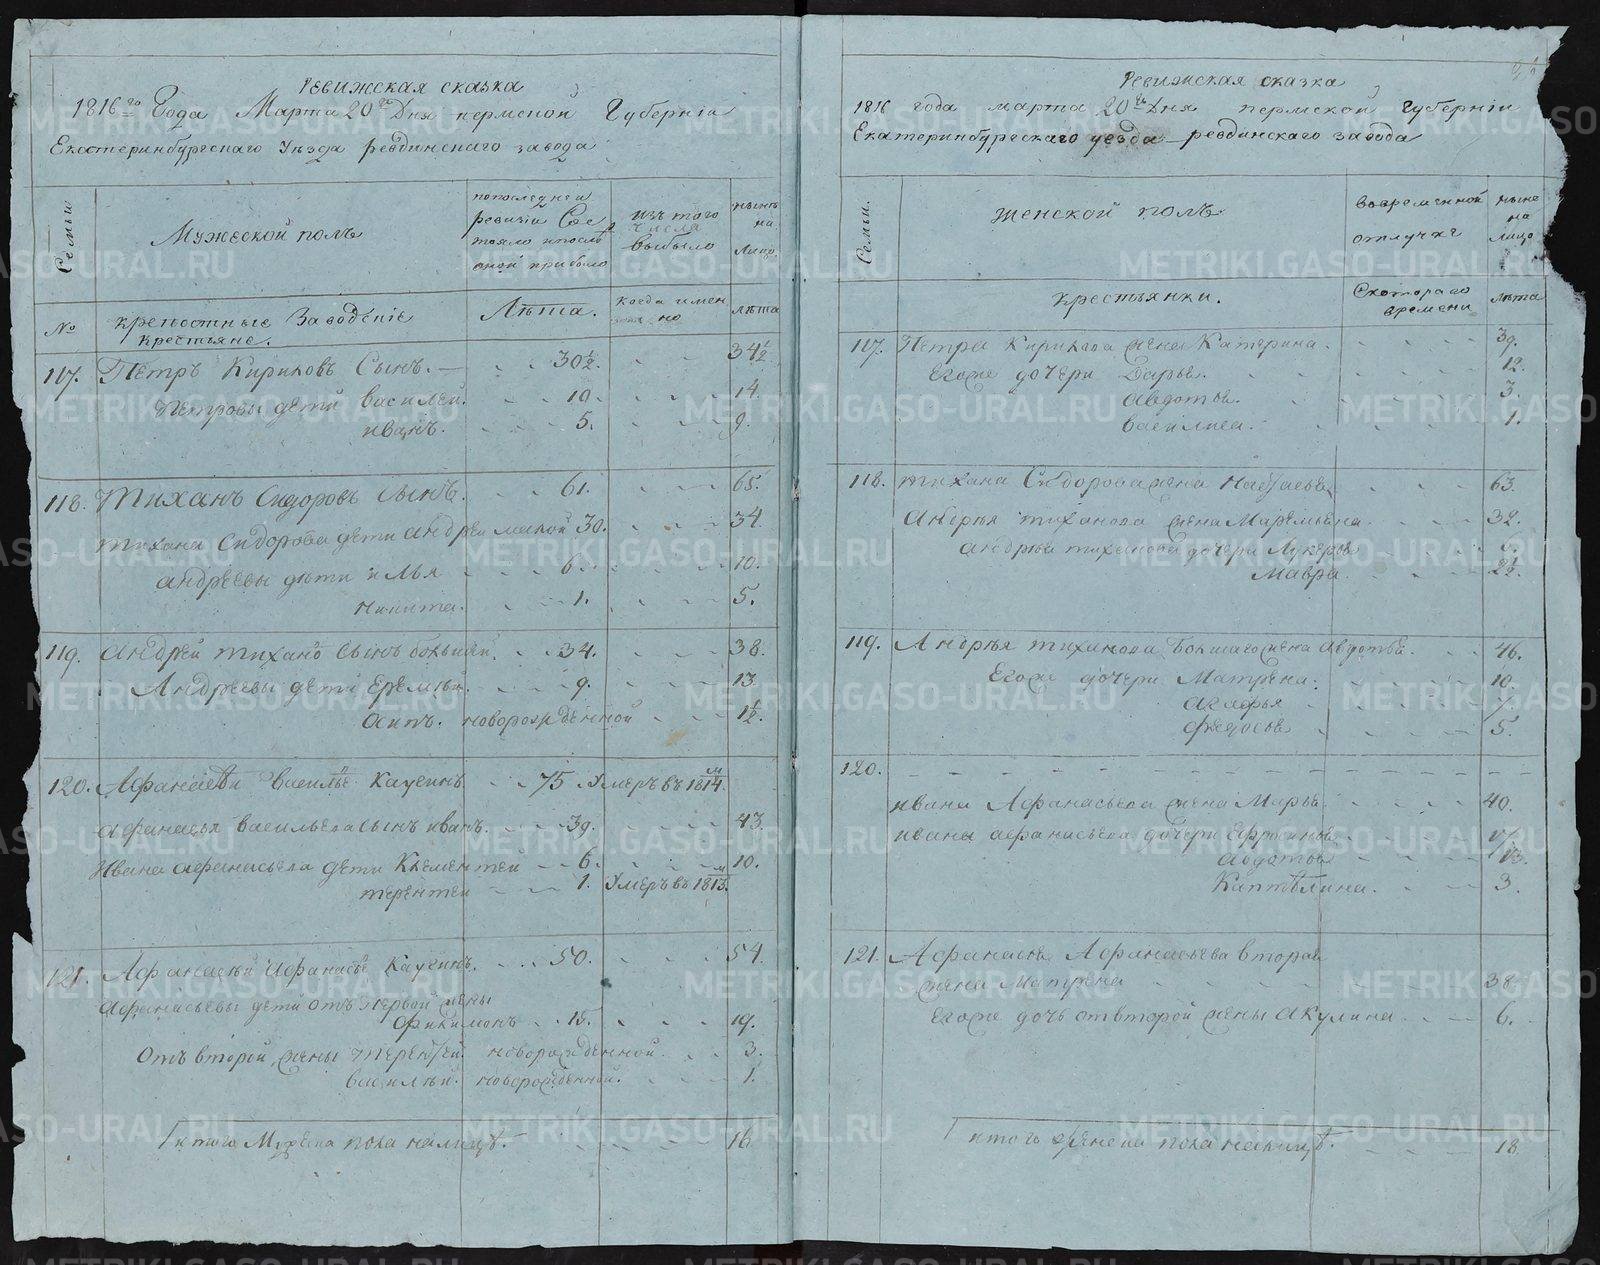 Ревижская сказка
1816го Года Марта 20го Дня пермской Губернiи
Екатеринбургскаго Уѣзда ревдинскаго завода
Семьи
Мужеской полъ
попоследней ревизiи Состояло ипослѣ оной прибыло
изътого числа выбыло
нынѣ на лицо
№
крепостные Заводскiе крестьяне.
Лѣта.
когда имянно
лѣта
117. Петръ Кириловъ Сынъ. 30½. 34½
Петровы дети василей. 10. 14.
иванъ. 5. 9.
118. Тиханъ Сидоровъ сынъ. 61. 65.
тихана Сидорова дети андреи меншой 30. 34.
андреевы дети илья 6. 10.
никита. 1. 5.
119. Андрей тихано сынъ болшей. 34. 38.
Андреевы дети Еремѣй. 9. 13.
новорожденной 1½.
120. Афанасей василье Каусинъ. 75. Умеръ въ 1814.
афанасья васильева сынъ иванъ. 39. 43.
Ивана афанасьева дети Клементей 6. 10.
терентей 1. Умеръ въ 1813.
121. Афанасѣй Афанасье Каусинъ. 50. 54.
афанасьевы дети отъ первой жены
филимонъ 15. 19.
отъ второй жены терентей. новорожденной. 3.
василѣй. новорожденной. 1.
итого мужска пола налицѣ. 16
Ревижская сказка
1816 года марта 20го Дня пермской губернiи
Екатеринбургскаго уезда ревдинскаго завода
Семьи.
женской полъ
вовременной отлучке
ныне на лицо
крестьянки.
Скотораго времени
лѣта
117. Петра Кирилова жена Катерина. 39.
Егоже дочери Дарья. 12.
авдотья. 3.
василиса. 1.
118. тихана Сидорова жена 63.
Андрѣя тиханова жена Маремьяна. 32.
андрѣя тиханова дочери Лукерья 6.
Мавра. 2½.
119. Андрѣя тиханова Болшаго жена авдотья. 46.
Егоже дочери Матрена. 10.
агафья 7.
федосья 5.
120.
ивана Афанасьева жена Марья. 40.
ивана афанасьева дочери Ефросинья 17.
авдотья 13.
Капитѣлина. 3.
121. Афанасья Афанасьева вторая
жена Матрена 38.
Егоже дочь отвторой жены акулина 6.
итого женска пола налицѣ. 18.
METRIKI.GASO-URAL.RU